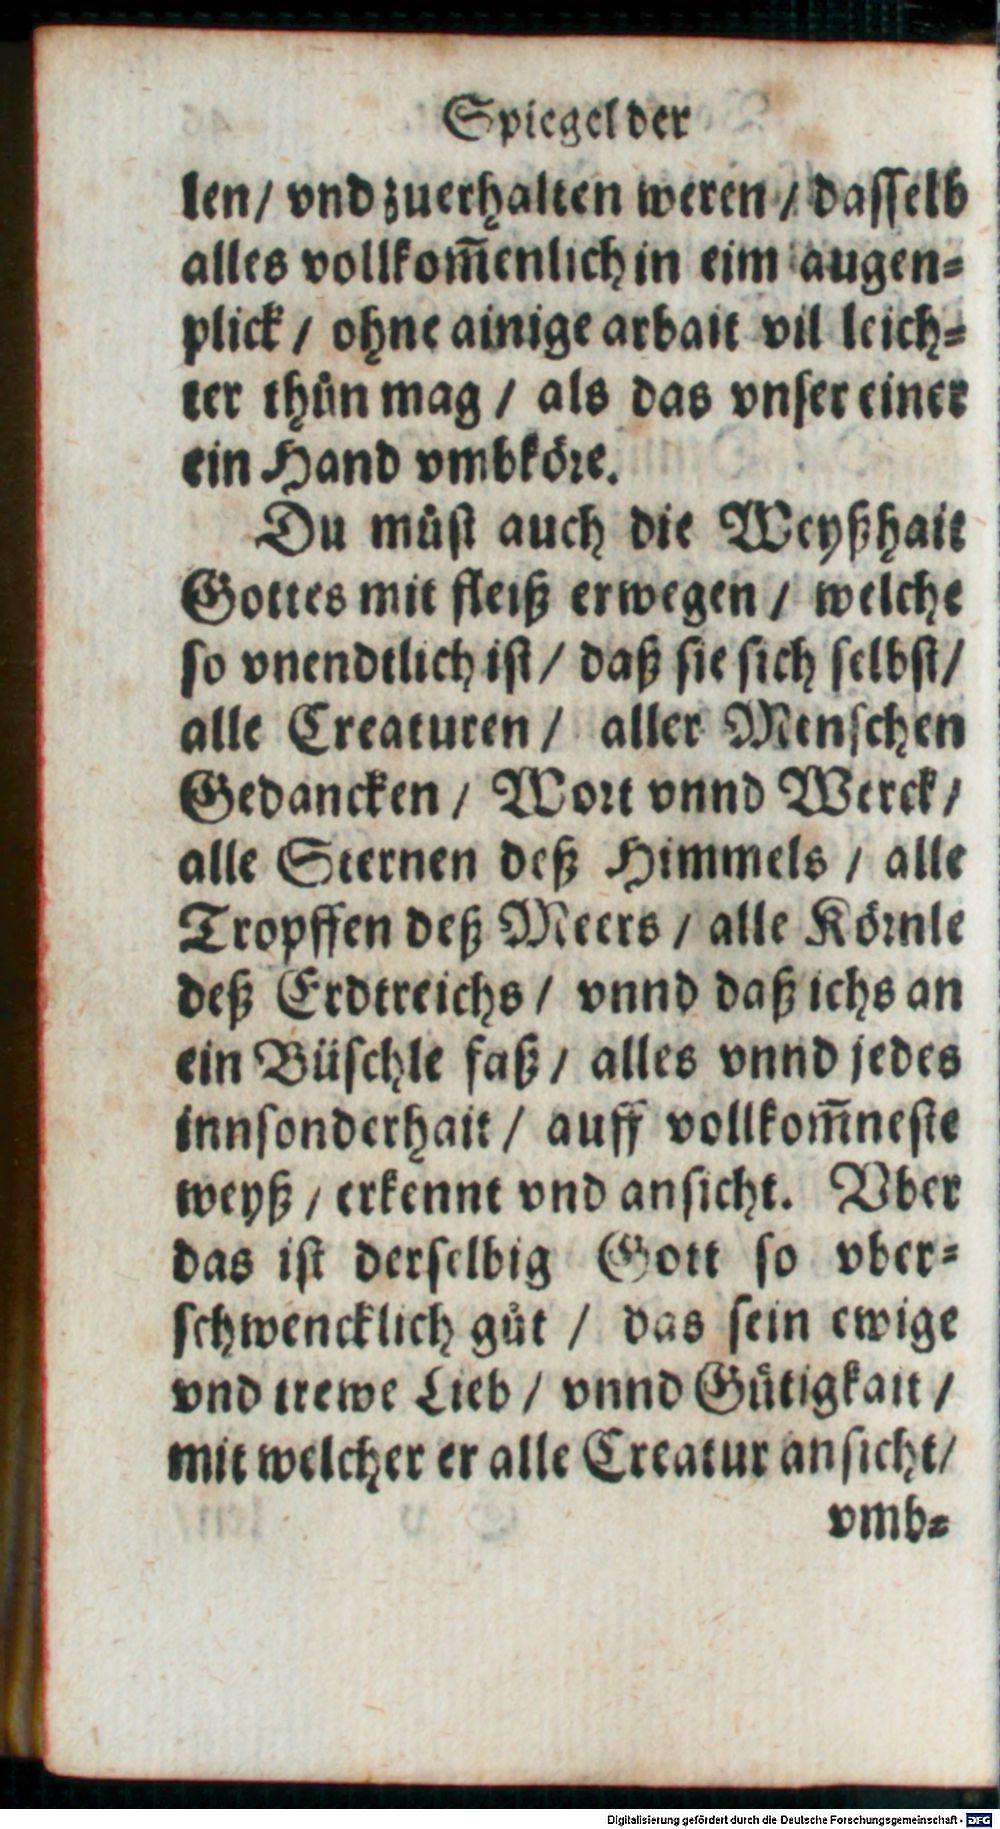 Spiegel der
len/ vnd zuerhalten weren / dasselb
alles vollkom̃enlich in eim augen⸗
plick / ohne ainige arbait vil leich⸗
ter thůn mag / als das vnser einer
ein Hand vmbköre.
Du můst auch die Weyßhait
Gottes mit fleiß erwegen / welche
so vnendtlich ist / daß sie sich selbst/
alle Creaturen / aller Menschen
Gedancken / Wort vnnd Werck /
alle Sternen deß Himmels / alle
Tropffen deß Meers / alle Körnle
deß Erdtreichs / vnnd daß ichs an
ein Büschle faß / alles vnnd jedes
innsonderhait / auff vollkom̃neste
weyß / erkennt vnd ansicht. Vber
das ist derselbig Gott so vber⸗
schwencklich gůt / das sein ewige
vnd trewe Lieb / vnnd Gůtigkait /
mit welcher er alle Creatur ansicht/
vmb⸗
Digitalisierung gefördert durch die Deutsche Forschungsgemeinschaft - DFG